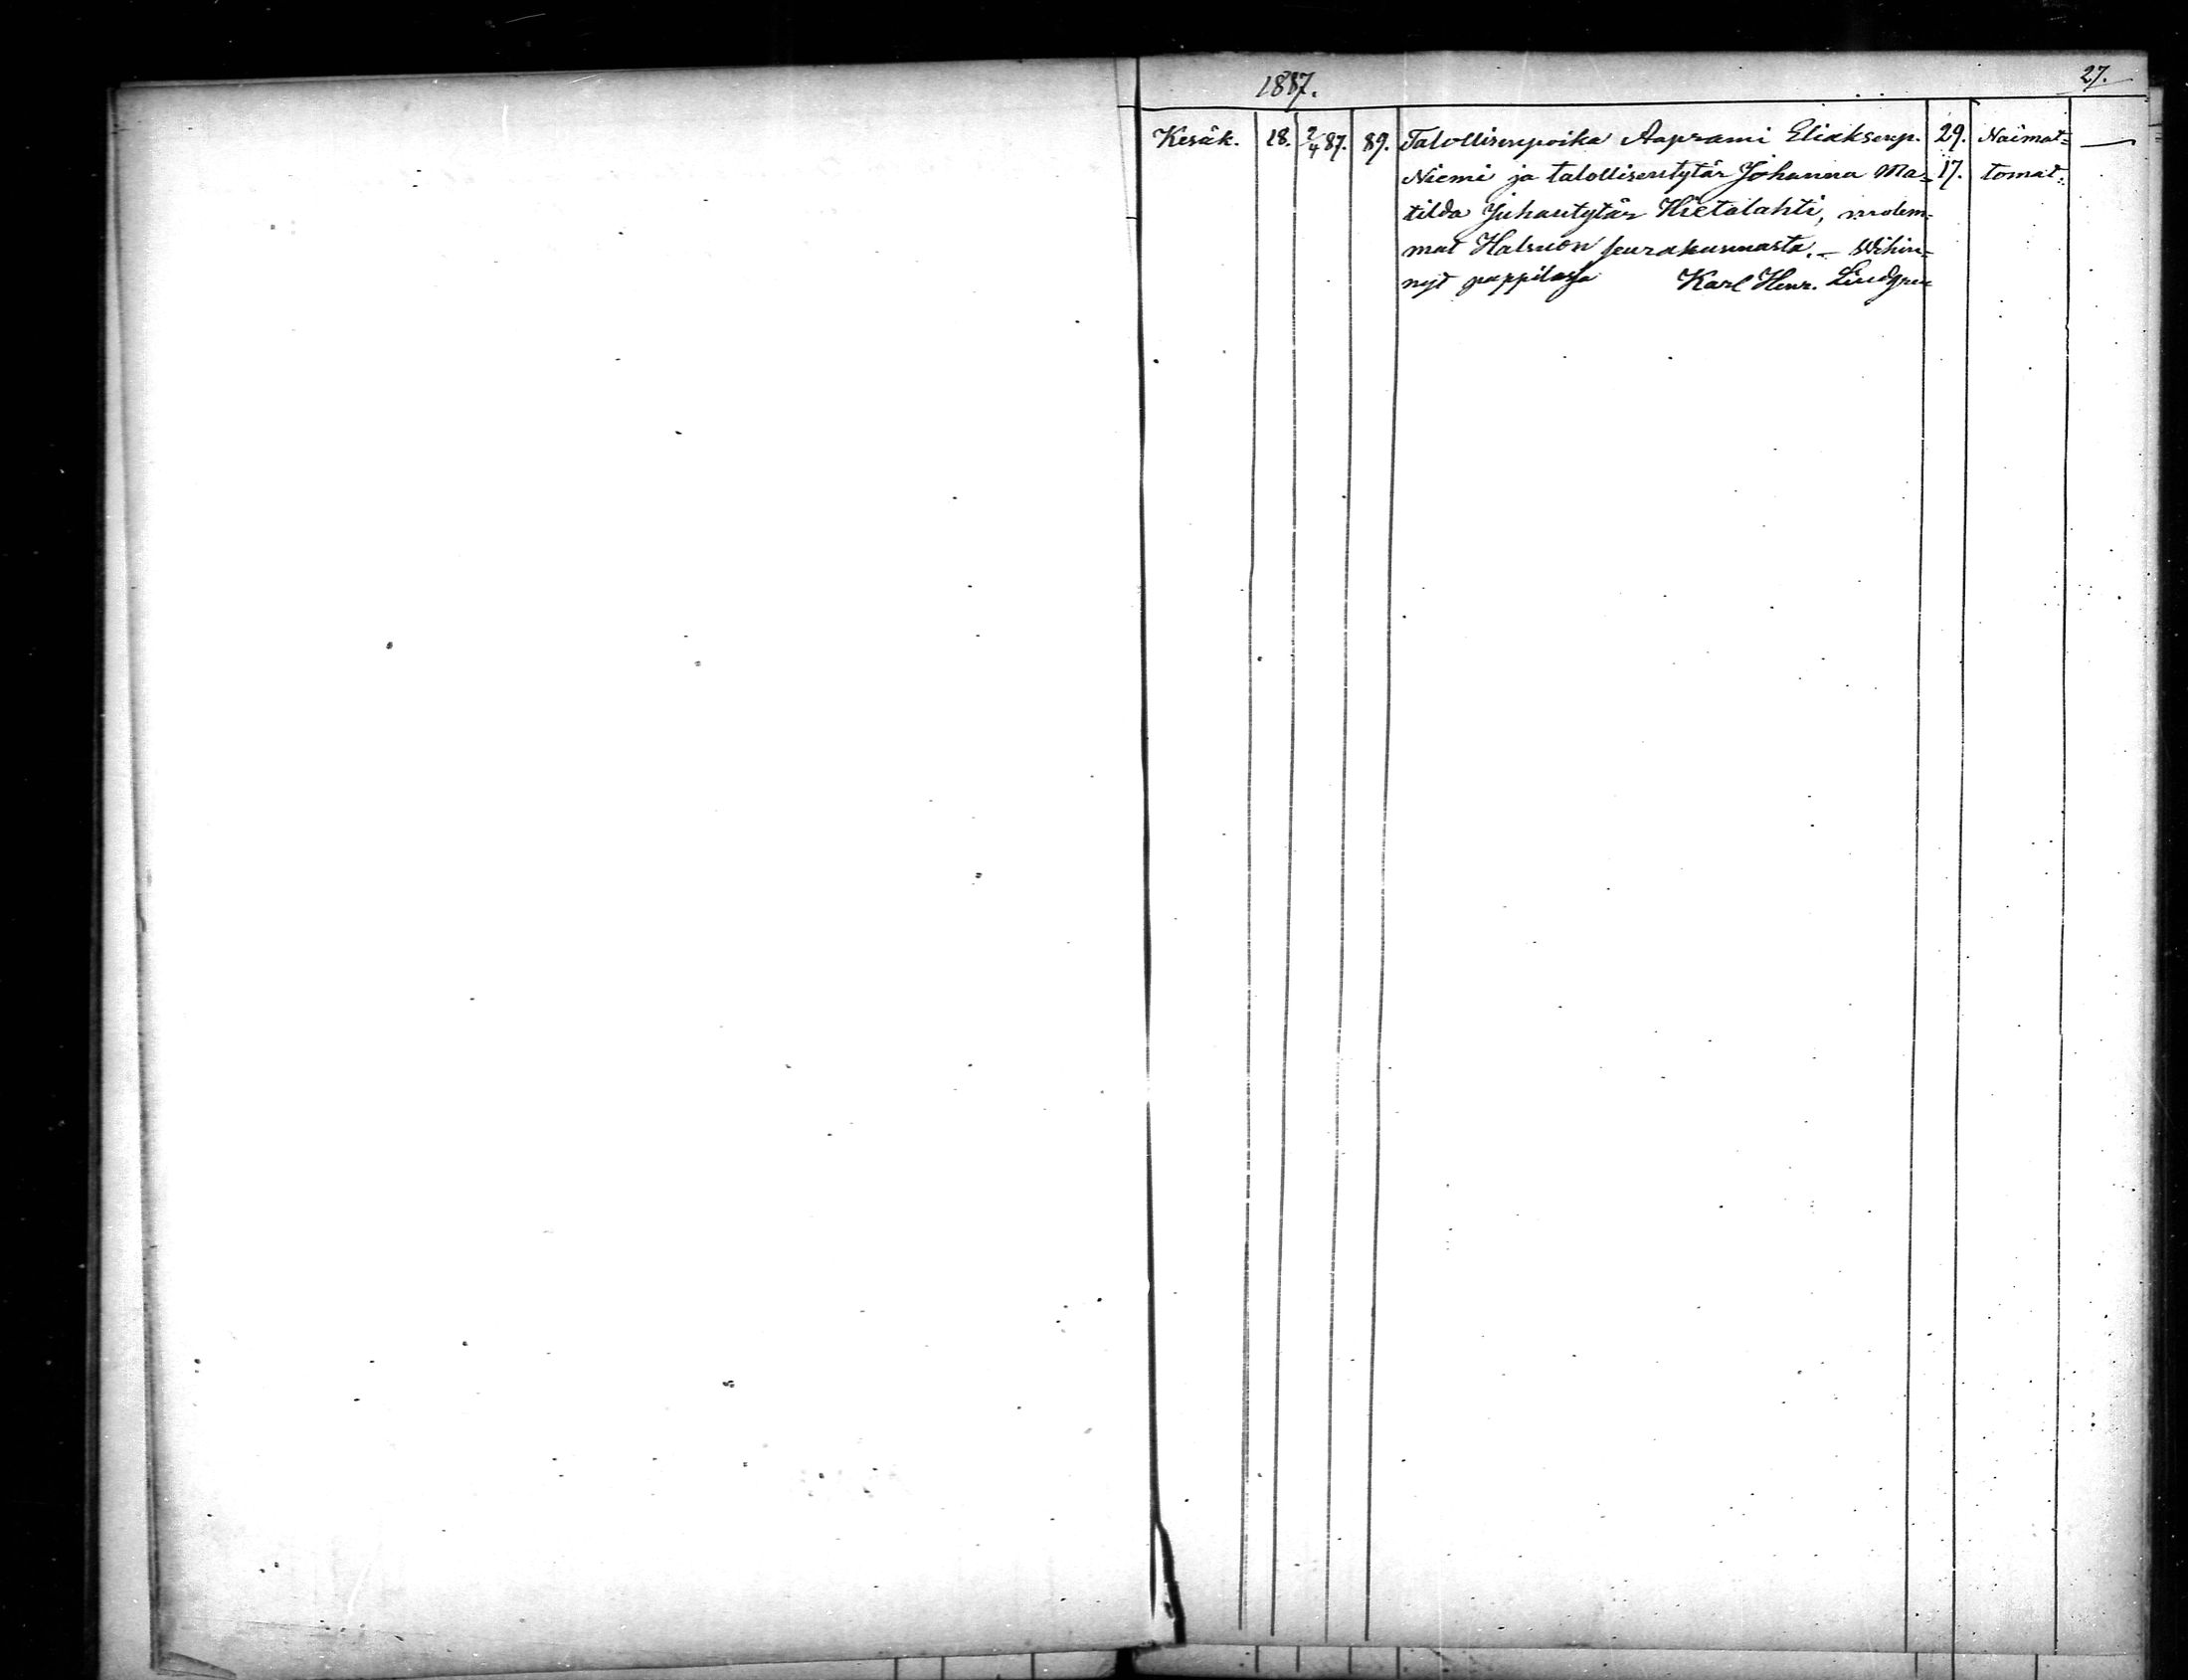 1887.
27.
Kesäk. 18. 2/4 87. 89. Talollisenpoika Aaprami Eliaksenp. 29. Naimat= —
Niemi ja talollisentytär Johanna Ma= 17. tomat.
tilda Juhantytär Hietalahti, molem-
mat Halsuon seurakunnasta. – Wihin-
nyt pappilassa Karl Henr. Lindgren